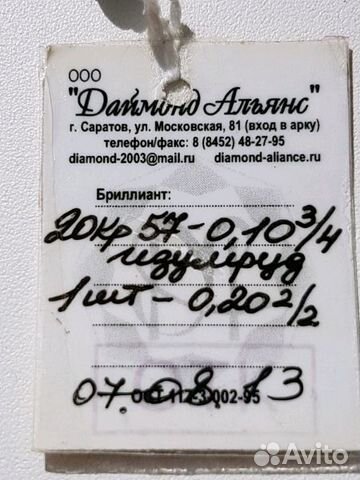 ООО
"Даймонд Альянс"
г. Саратов, ул. Московская, 81 (вход в арку)
телефон/факс: 8 (8452) 48-27-95
diamond-2003@mail.ru diamond-aliance.ru
Бриллиант:
20кр 57-0,10 3/4
изумруд
1шт-0,20 2/2
07.08.13
002-95
Avito